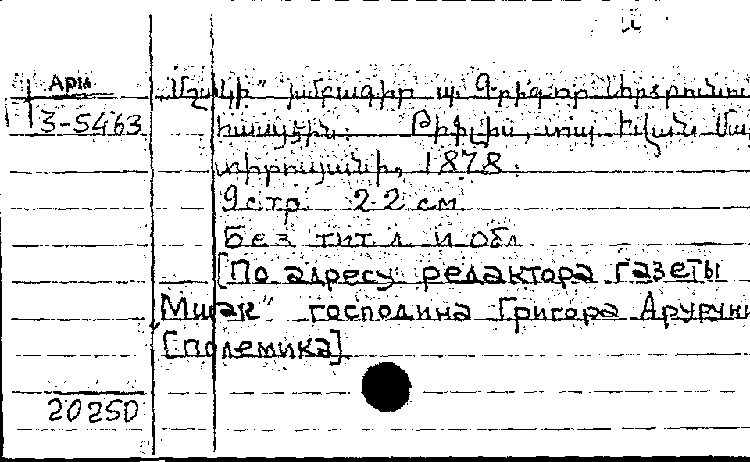 Арм
3-5463
"Մշակի" խմբագիր պ. Գրիգոր Արծրունու
Թիֆլիս, տպ. Եփկան Մար
տիրոսյանի, 1878.
9 стр. 22 см
Без тит. л. и обл.
[По адресу редактора газеты
"Мшак" господина Григора Аруруни
[полемика]
20250